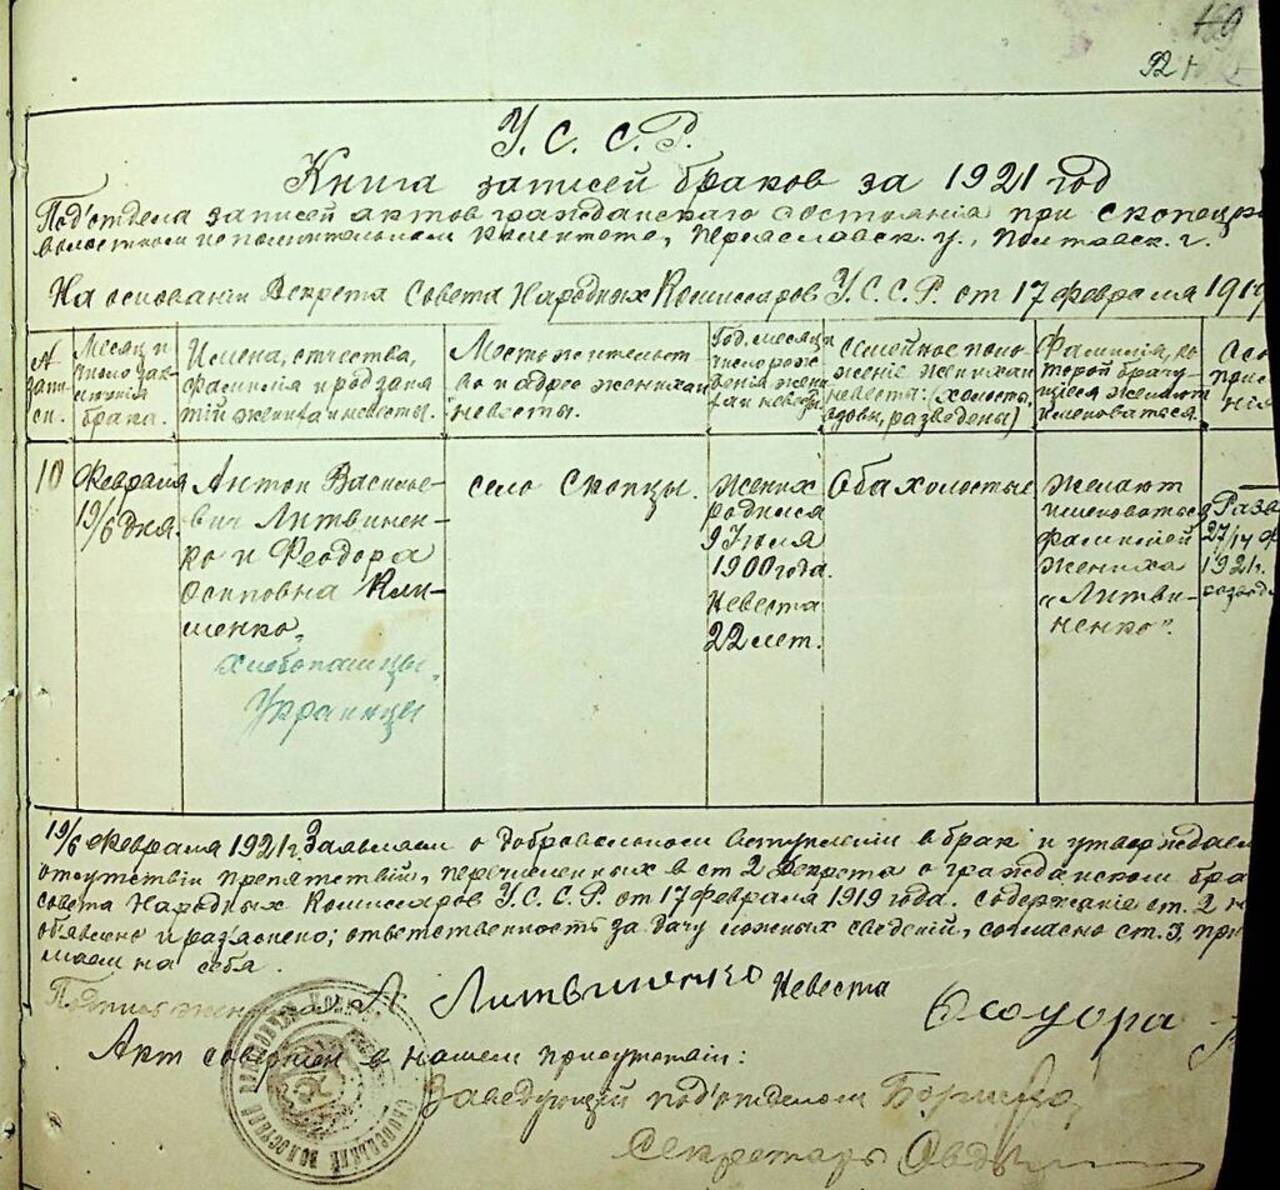 У. С. С. Р.
Книга записей браков за 1921 год
Под'отдела записей актов гражданскаго состоянія при Скопецко
волостном исполнительном комитете, Переяславск. у., Полтавск. г.
На основаніи Декрета Совета Народных Комиссаров У. С. С. Р. от 17 февраля 1919
№ запи-си.
Месяц и число зак-люченія брака.
Имена, отчества, фамилія и род заня-тій жениха и невесты.
Место жительст-во и адрес жениха и невесты.
Год, месяц и число рож-денія жени-ха и невесты.
Семейное поло-жение жениха и невесты: (холосты, вдовы, разведены)
Фамилія, ко-торой брачу-щиеся желают именоваться.
10
Февраля
19/6 дня.
Антон Василье-
вич Литвинен-
ко и Феодора
Осиповна Кли-
менко.
хлебопашцы,
Украинцы
село Скопцы.
Жених
родился
9 Июля
1900 года.
Невеста
22 лет.
Оба холостые
Желают
именоваться
фамилией
жениха
"Литви-
ненко".
27/14 ф
1921 г.
19/6 Февраля 1921 г. Заявляем о добровольном вступлении в брак и утверждаем
отсутствіи препятствій, перечисленных в ст 2 Декрета о гражданском бра
совета Народных Комиссаров У. С. С. Р. от 17 февраля 1919 года. содержаніе ст. 2 н
об'явлено и раз'яснено; ответственность за дачу ложных сведений, согласно ст. 3, при
маем на себя.
Подпись жениха А. Литвиненко Невеста Феодора
Акт совершен в нашем присутствіи:
Заведующій под'отделом
Секретарь